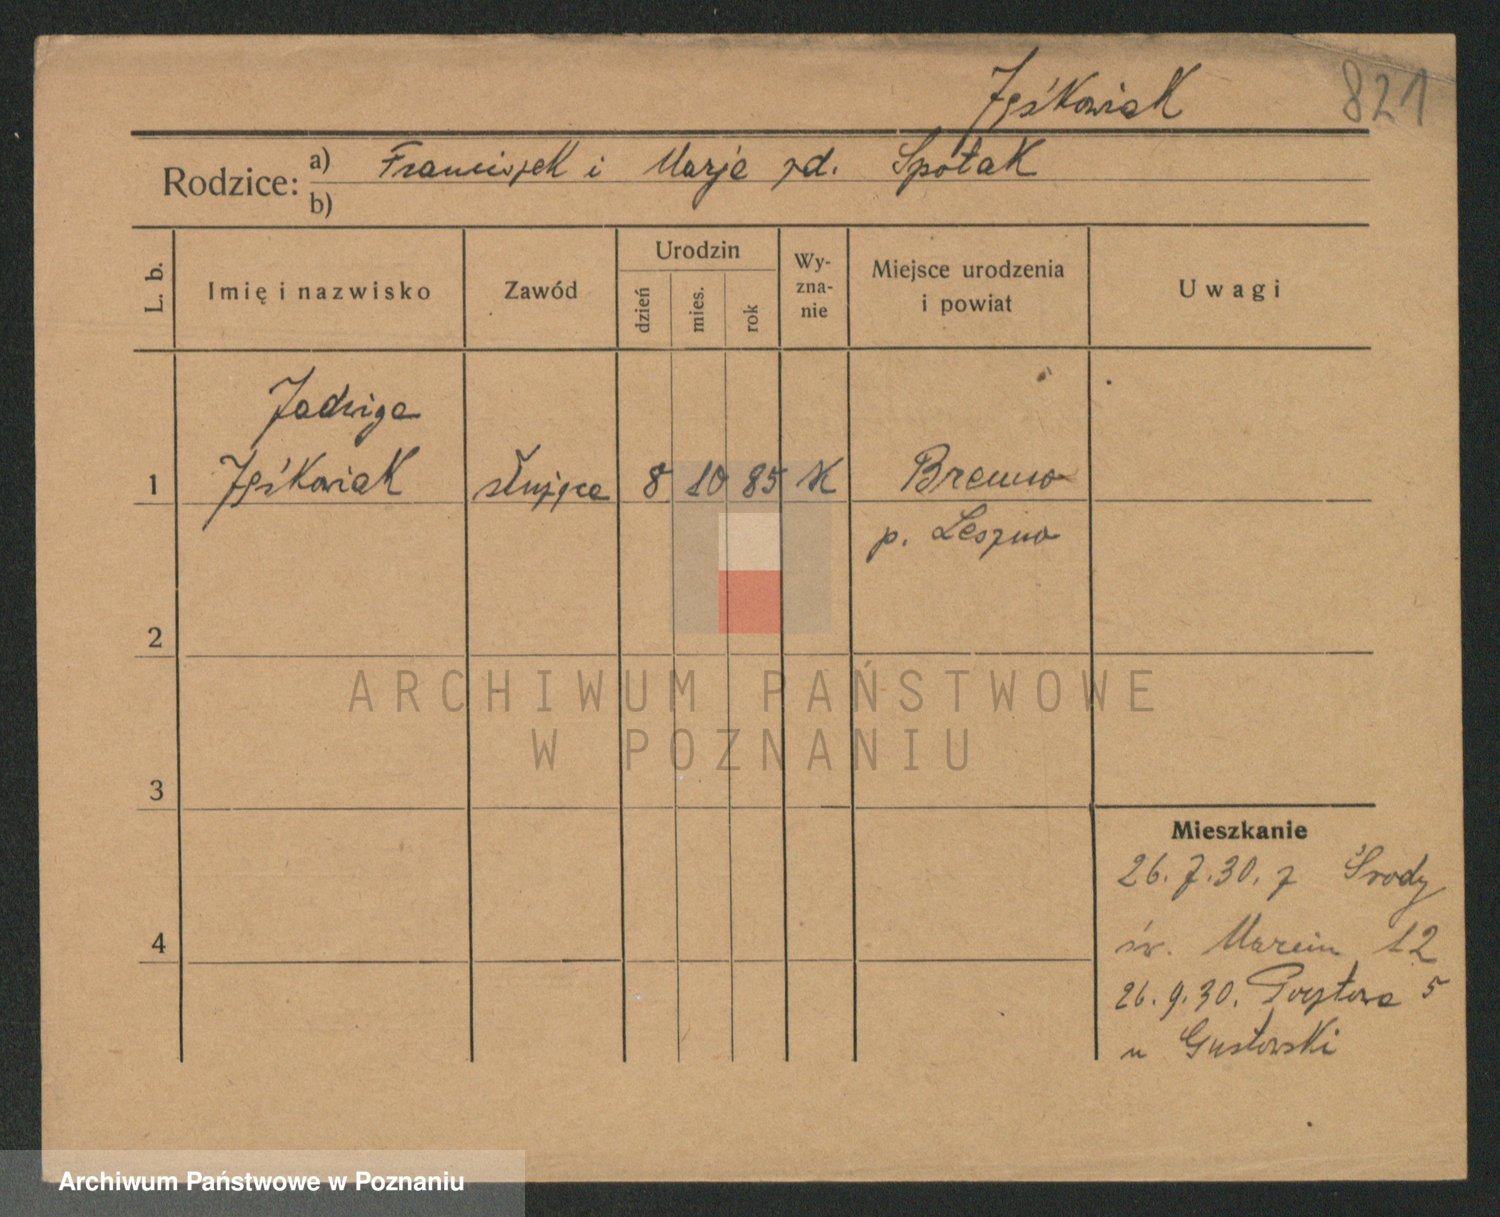 Jęśkowiak 821
Rodzice: a) Franciszek i Marja zd. Spotak
b)
L. b. Imię i nazwisko Zawód Urodzin dzień mies. rok Wy-zna-nie Miejsce urodzenia i powiat Uwagi
Jadwiga
1 Jęśkowiak służąca 8 10 85 K Brenno
p. Leszno
2
ARCHIWUM PAŃSTWOWE
W POZNANIU
3
Mieszkanie
26.7.30. z Środy
4 św. Marcin 12
26.9.30. Pocztowa 5
u Gustowski
Archiwum Państwowe w Poznaniu